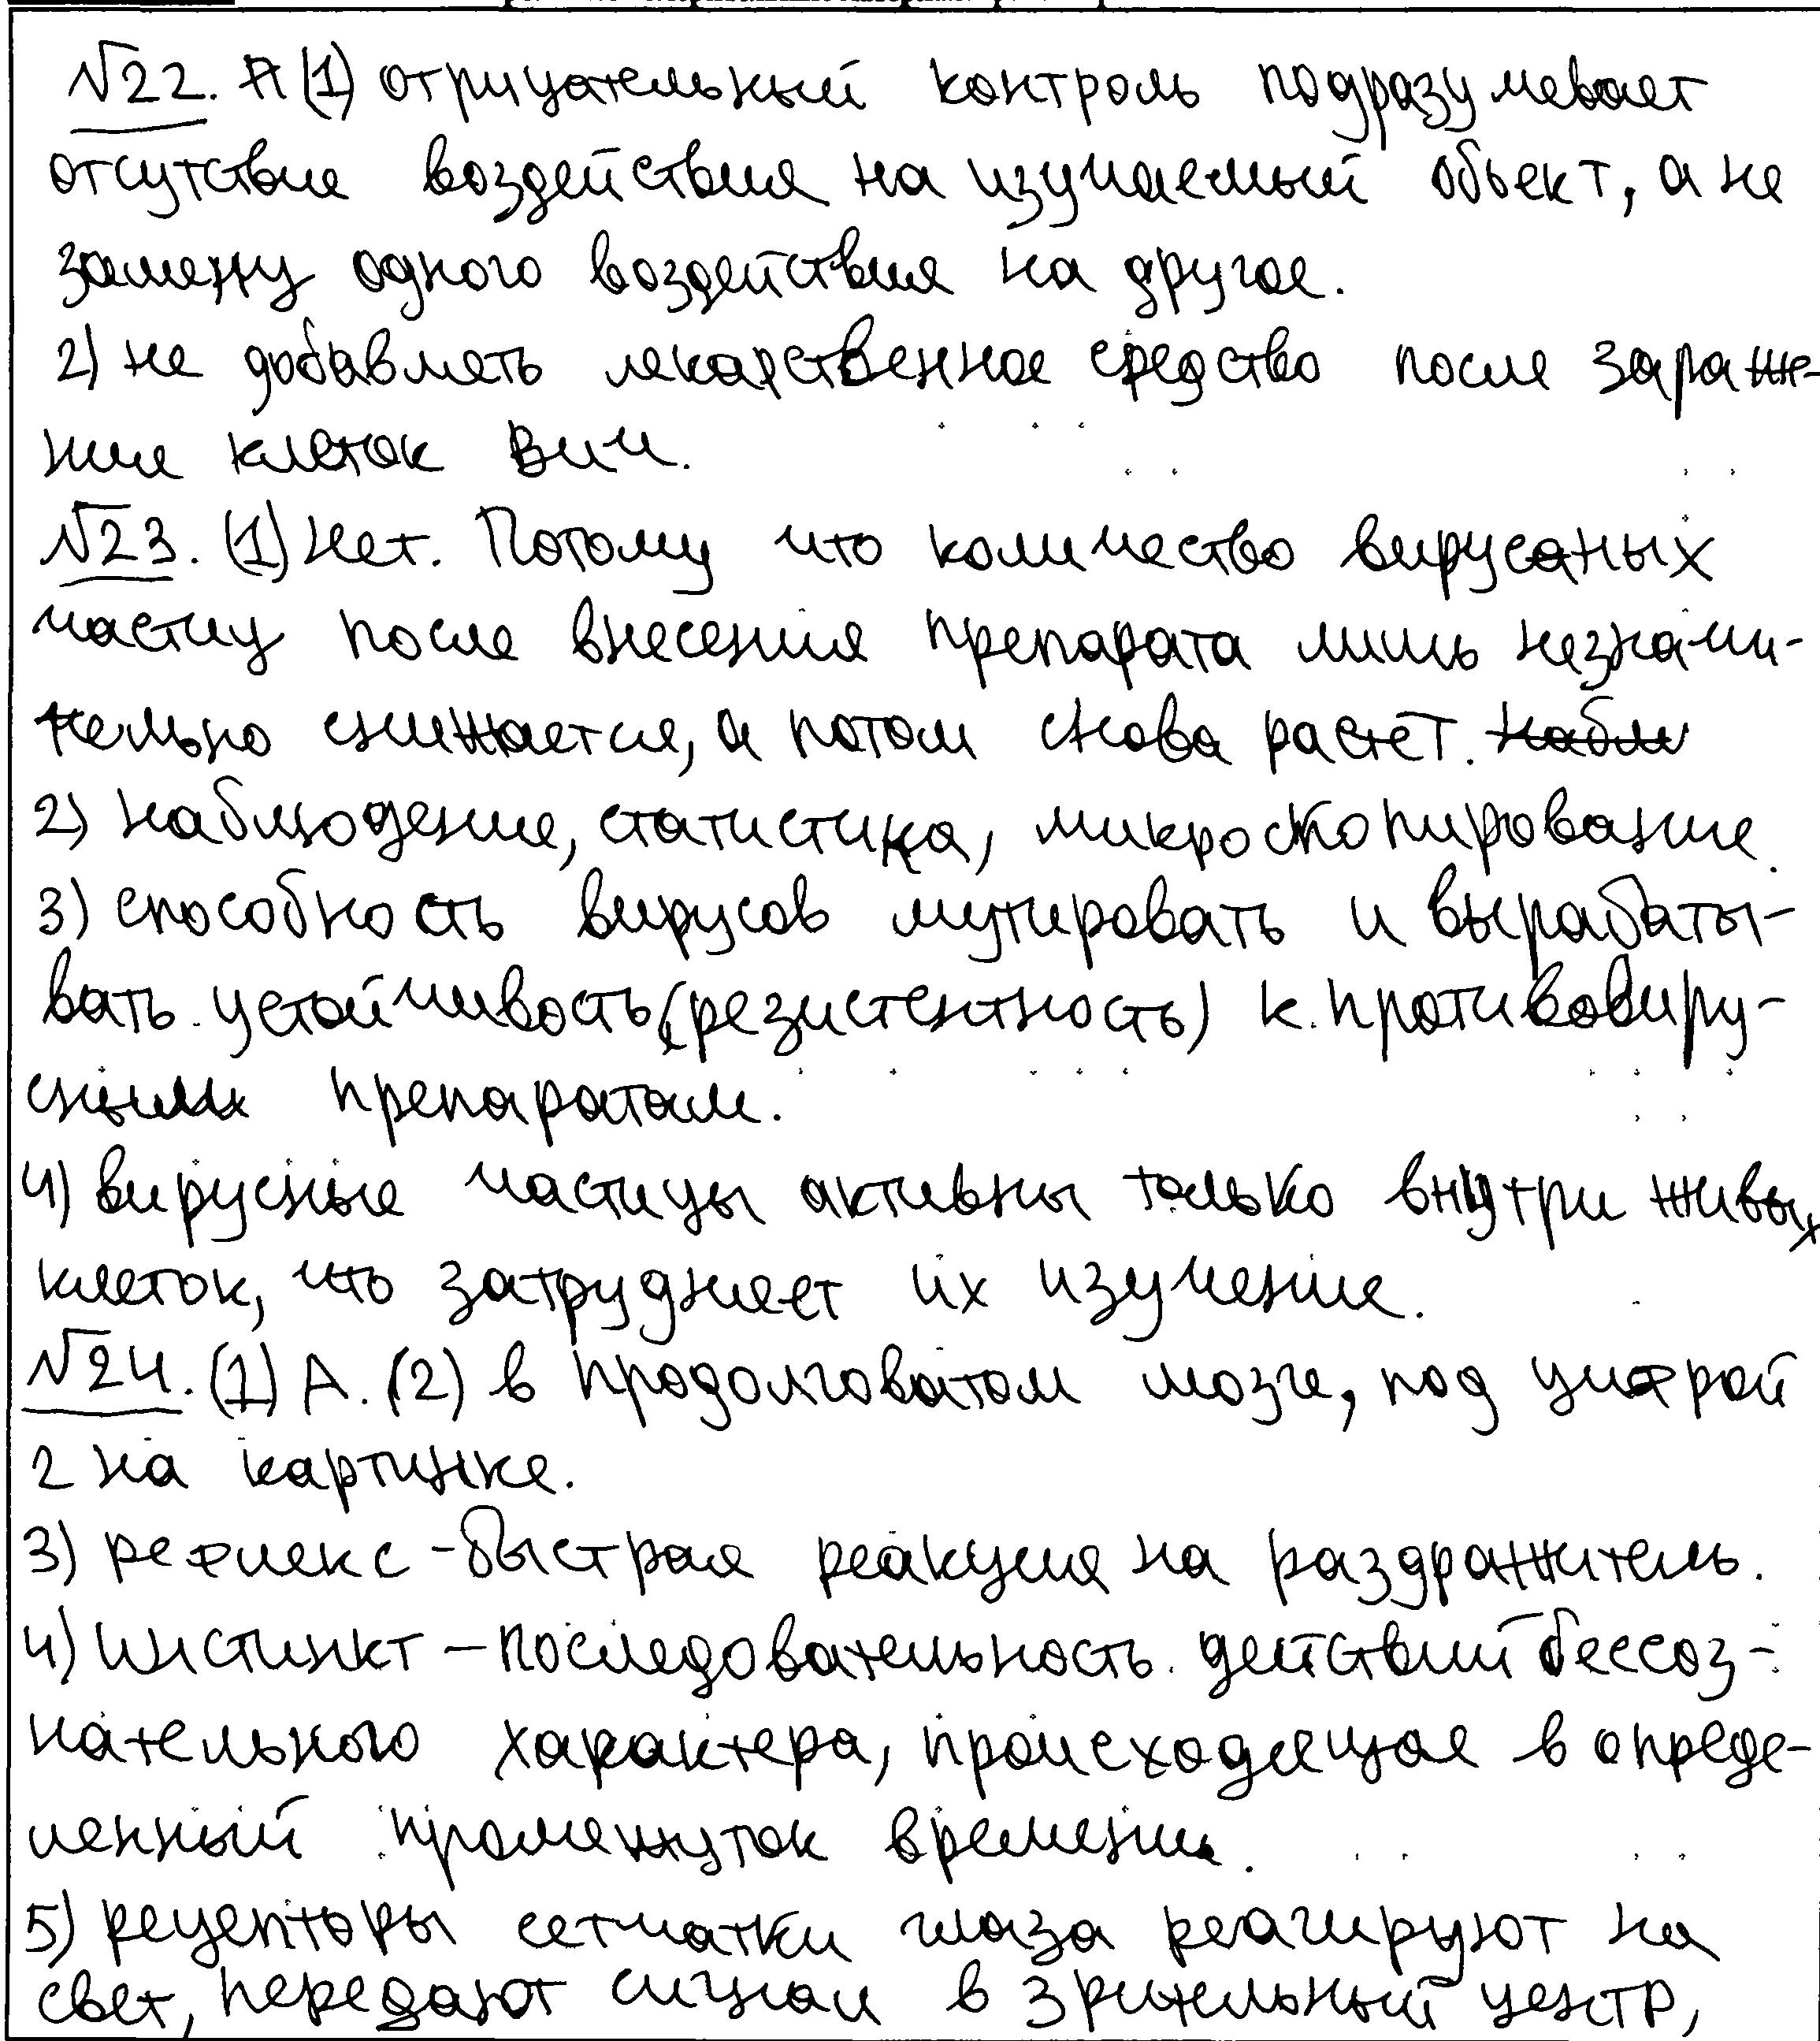 №22. (1) отрицательный контроль подразумевает
отсутствие воздействия на изучаемый объект, а не
замену одного воздействия на другое.
2) не добавлять лекарственное средство после зараже-
ния клеток ВИЧ.
№23. (1) Нет. Потому что количество вирусных
частиц после внесения препарата лишь незначи-
тельно снижается, а потом снова растёт.
2) наблюдение, статистика, микроскопирование.
3) способность вирусов мутировать и вырабаты-
вать устойчивость (резистентность) к противовиру-
сным препаратам.
4) вирусные частицы активны только внутри живых
клеток, что затрудняет их изучение.
№24. (1) А. (2) в продолговатом мозге, под цифрой
2 на картинке.
3) рефлекс - быстрая реакция на раздражитель.
4) инстинкт – последовательность действий бессоз-
нательного характера, происходящая в опреде-
ленный промежуток времени.
5) рецепторы сетчатки глаза реагируют на
свет, передают сигнал в зрительный центр,